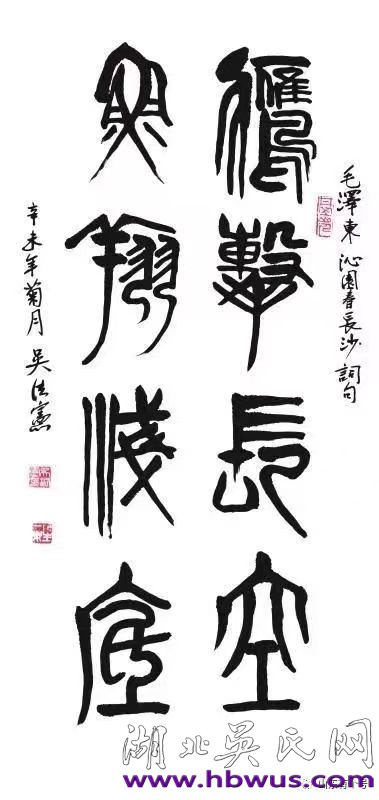 毛澤東 沁園春長沙 詞句
鷹擊長空
魚翔淺底
辛未年菊月 吴法憲
湖北吴氏网
www.hbwus.com